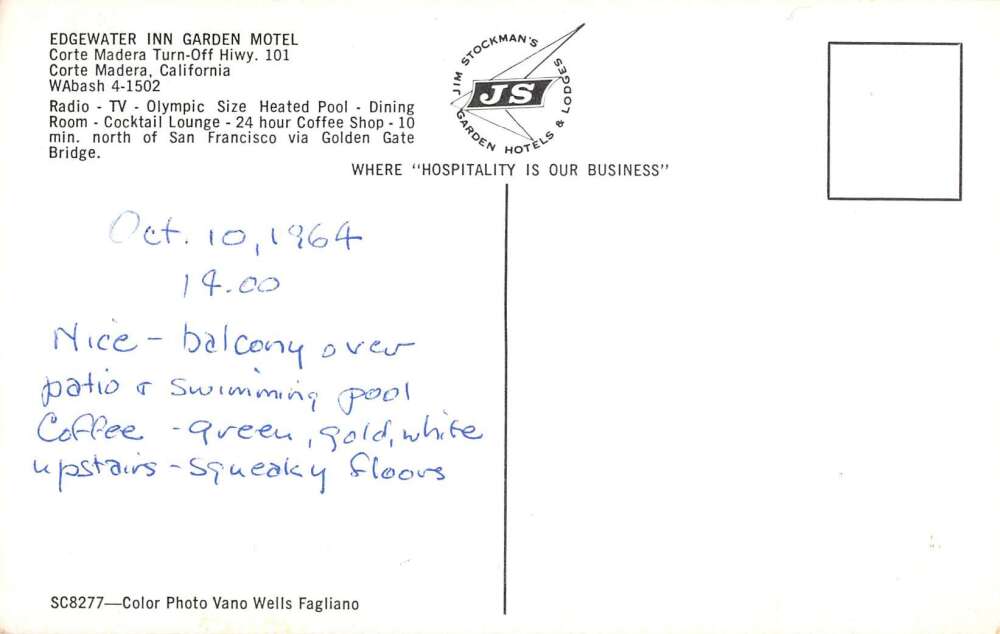 EDGEWATER INN GARDEN MOTEL
Corte Madera Turn-Off Hiwy. 101
Corte Madera, California
WAbash 4-1502
Radio - TV - Olympic Size Heated Pool - Dining
Room - Cocktail Lounge - 24 hour Coffee Shop - 10
min. north of San Francisco via Golden Gate
Bridge.
JIM STOCKMAN'S
JS
GARDEN HOTELS & LODGES
WHERE "HOSPITALITY IS OUR BUSINESS"
Oct. 10, 1964
14.00
Nice - balcony over
patio & swimming pool
Coffee - green, gold, white
upstairs - squeaky floors
SC8277—Color Photo Vano Wells Fagliano